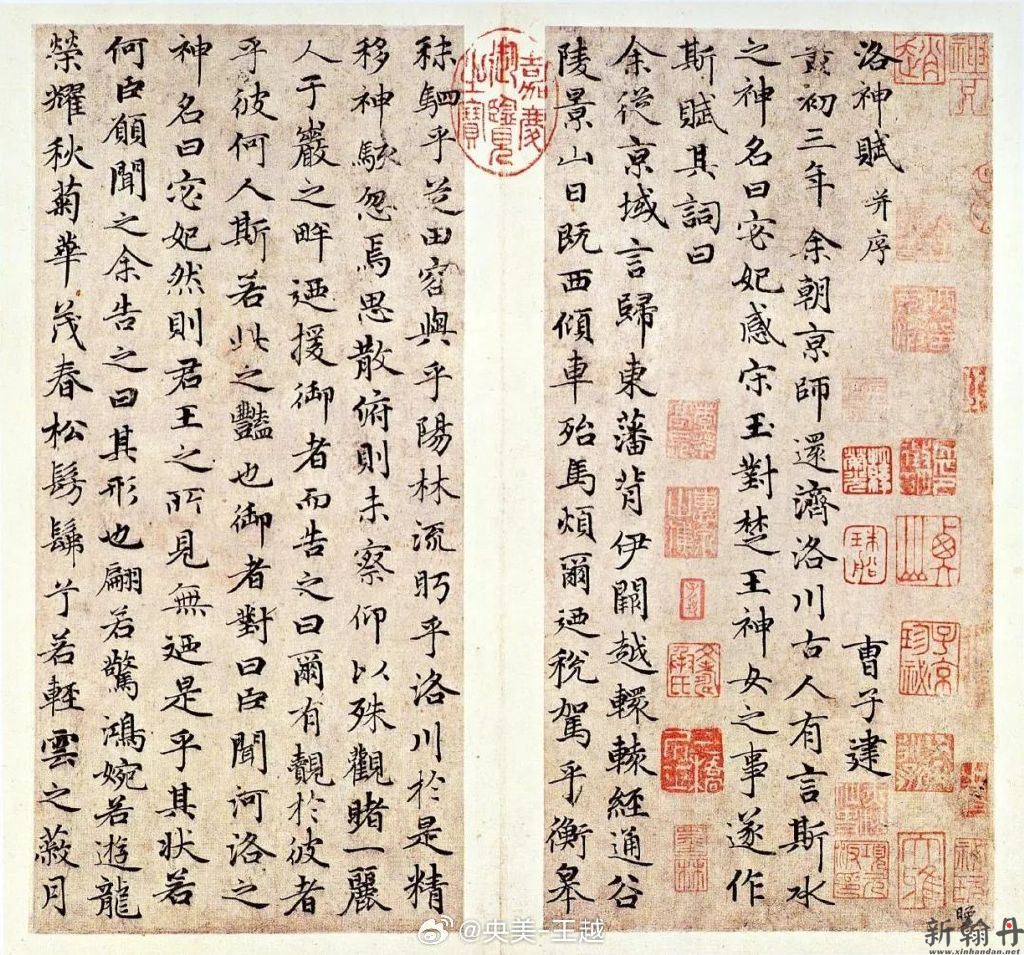 洛神賦 并序 曹子建
黃初三年余朝京師還濟洛川古人有言斯水
之神名曰宓妃感宋玉對楚王神女之事遂作
斯賦其詞曰
余從京域言歸東藩背伊闕越轘轅經通谷
陵景山日既西傾車殆馬煩爾迺稅駕乎衡皋
秣駟乎芝田容與乎陽林流眄乎洛川於是精
移神駭忽焉思散俯則未察仰以殊觀睹一麗
人于巖之畔迺援御者而告之曰爾有覿於彼者
乎彼何人斯若此之豔也御者對曰臣聞河洛之
神名曰宓妃然則君王之所見無迺是乎其狀若
何臣願聞之余告之曰其形也翩若驚鴻婉若遊龍
榮耀秋菊華茂春松髣髴兮若輕雲之蔽月
嘉慶御覽之寶
子京珍祕
墨林
大雅
@央美-王越
新翰丹
www.xinhandan.net